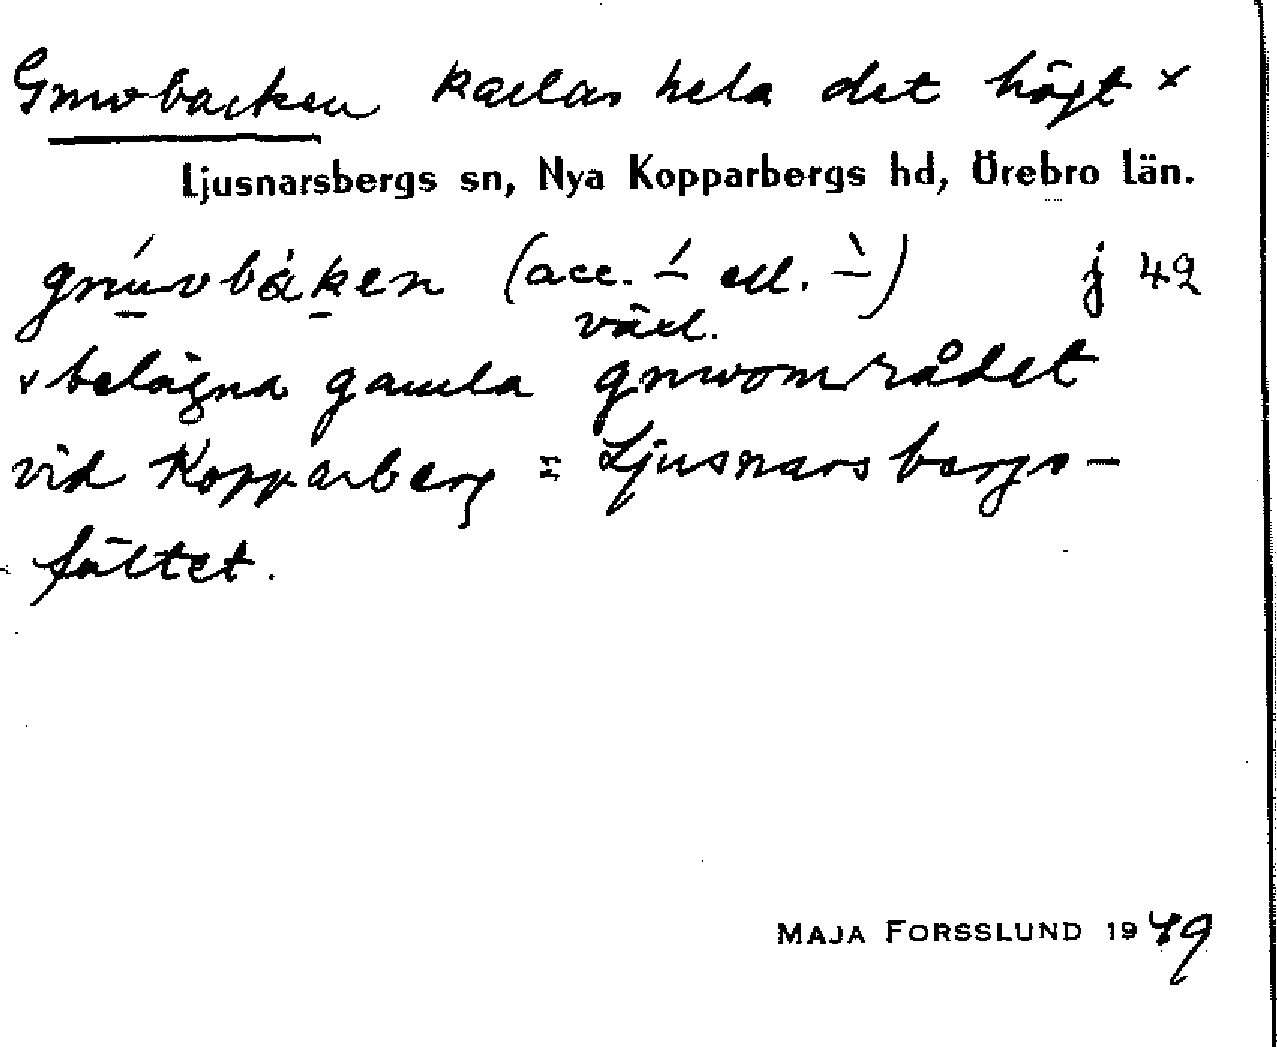 Gruvbacken kallas hela det högt ×
Ljusnarsbergs sn, Nya Kopparbergs hd, Örebro län.
grúvbàken (acc. ´ ell. `) j 42
växl.
× belägna gamla gruvområdet
vid Kopparberg = Ljusnarsbergs-
fältet.
MAJA FORSSLUND 1949